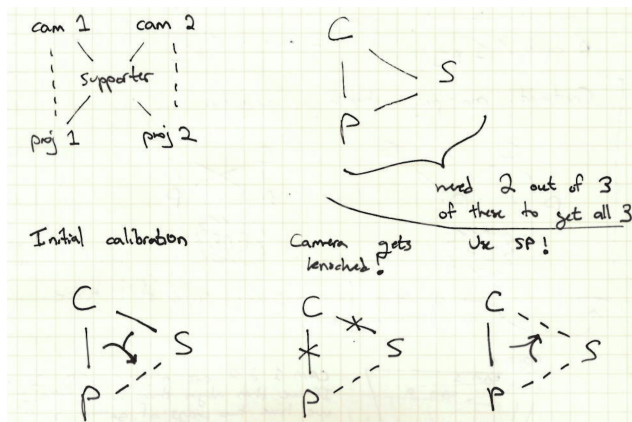 cam 1 cam 2
supporter
proj 1 proj 2
C
S
P
need 2 out of 3
of these to get all 3
Initial calibration
Camera gets
knocked!
Use SP!
C
S
P
C
S
P
C
S
P